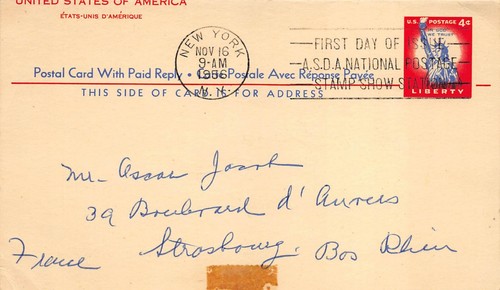 UNITED STATES OF AMERICA
ÉTATS-UNIS D'AMÉRIQUE
NEW YORK
NOV 16
9-AM
1956
N.Y.
FIRST DAY OF ISSUE
A.S.D.A. NATIONAL POSTAGE
STAMP SHOW STATION
U.S. POSTAGE 4¢
IN GOD WE TRUST
LIBERTY
Postal Card With Paid Reply • Carte Postale Avec Réponse Payée
THIS SIDE OF CARD IS FOR ADDRESS
Mr. Oscar
39 Boulevard d'Anvers
Strasbourg. Bas Rhin
France